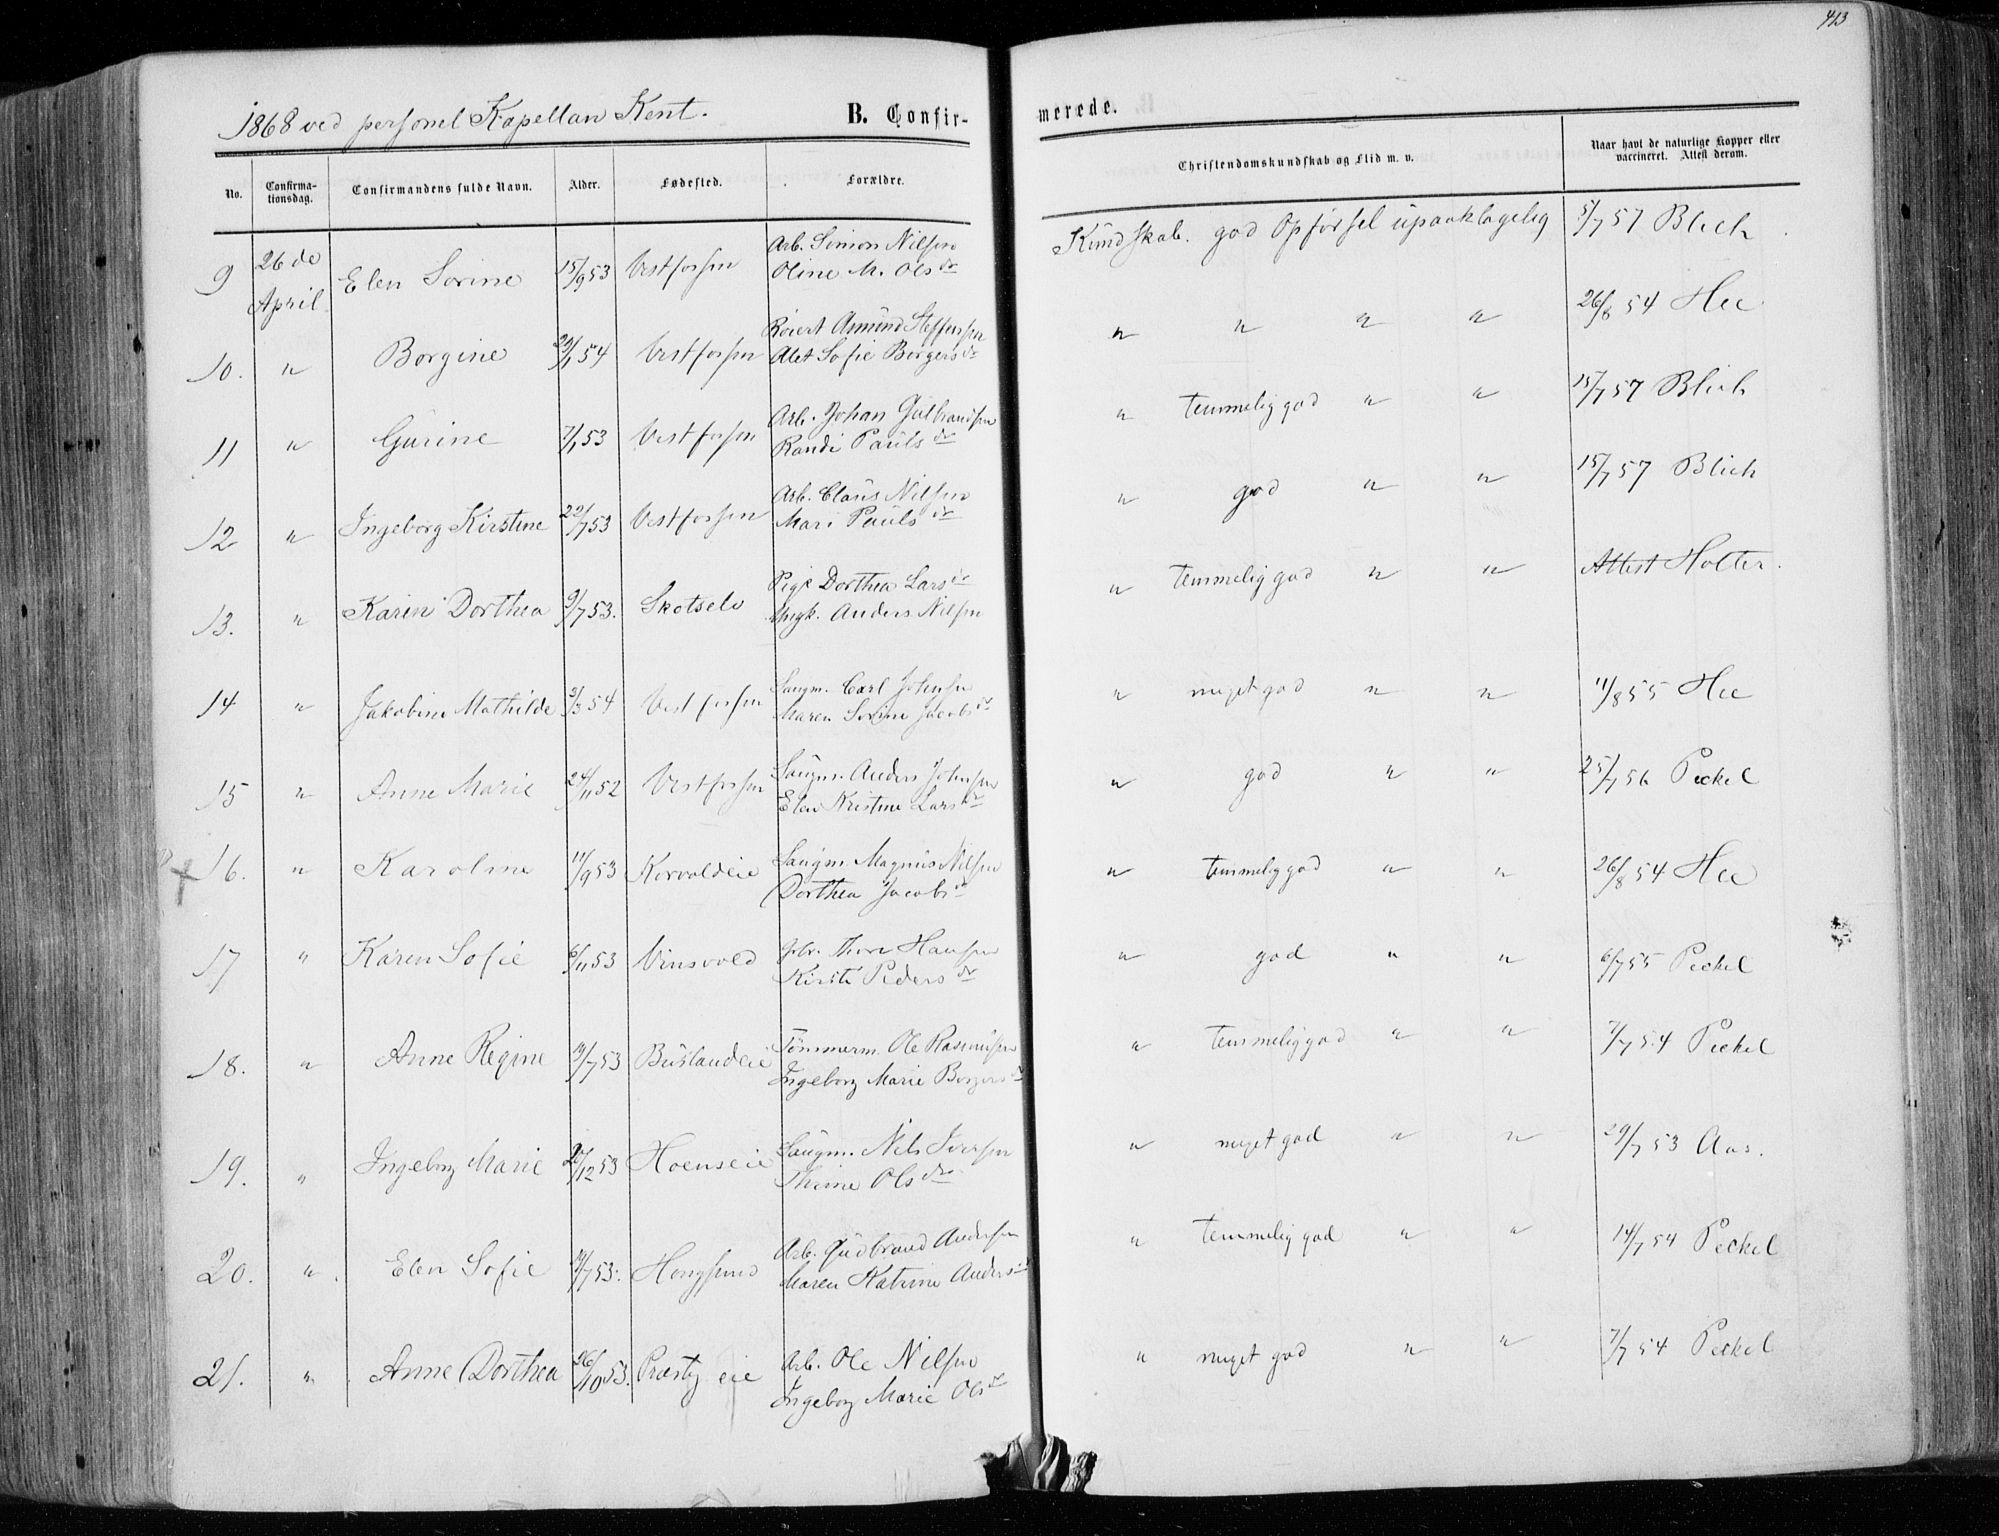 413
1868 ved personel Kapellan Kent.
B. Confir-
merede.
No.
Confirma-
tionsdag.
Confirmandens fulde Navn.
Alder.
Fødested.
Forældre.
Christendomskundskab og Flid m. v.
Naar havt de naturlige Kopper eller
vaccineret. Attest derom.
9 26de April Elen Sorine 15/9 53 Vestfossen Arb. Simon Nilsen
Oline M. Olsdr
Kundskab. god Opførsel upaaklagelig 5/7 57 Blich
10. " Borgine 29/1 54 Vestfossen Amund Steffensen
Alet Sofie Borgersdr
" " " " 26/8 54 Hee
11 " Gurine 7/1 53 Vestfossen Arb. Johan Gulbrandsen
Randi Paulsdr
" temmelig god " " 15/7 57 Blich
12 " Ingeborg Kirstine 22/7 53 Vestfossen Arb. Claus Nilsen
Mari Paulsdr
" god " " 15/7 57 Blich
13. " Karen Dorthea 9/7 53. Skotselv Pige Dorthea Larsdr
Ungk. Anders Nilsen
" temmelig god " " Attest Holter.
14 " Jakobine Mathilde 3/3 54 Vestfossen Saugm. Carl Johnsen
Maren Sorine Jacobsdr
" meget god " " 11/8 55 Hee
15 " Anne Marie 24/11 52 Vestfossen Saugm. Anders Johnsen
Elen Kristine Larsdr
" god " " 25/7 56 Peckel
16. " Karoline 11/9 53 Korvoldeie Saugm. Magnus Nilsen
Dorthea Jacobsdr
" temmelig god " " 26/8 54 Hee
17 " Karen Sofie 6/11 53 Vinsvold Thore Hansen
Kirsti Pedersdr
" god " " 6/7 55 Peckel
18. " Anne Regine 19/7 53 Buslandeie Tömmerm. Ole Rasmusen
Ingeborg Marie Borgersdr
" temmelig god " " 7/7 54 Peckel
19. " Ingeborg Marie /12 53 Hoenseie Saugm. Nils Iversen
Thrine Olsdr
" meget god " " 29/7 53 Aas.
20. " Elen Sofie /7 53. Hougsund Arb. Gudbrand Andersen
Maren Katrine Andersdr
" temmelig god " " 14/7 54 Peckel
21. " Anne Dorthea 26/10 53. Præstg eie Arb. Ole Nilsen
Ingeborg Marie Olsdr
" meget god " " 7/7 54 Peckel